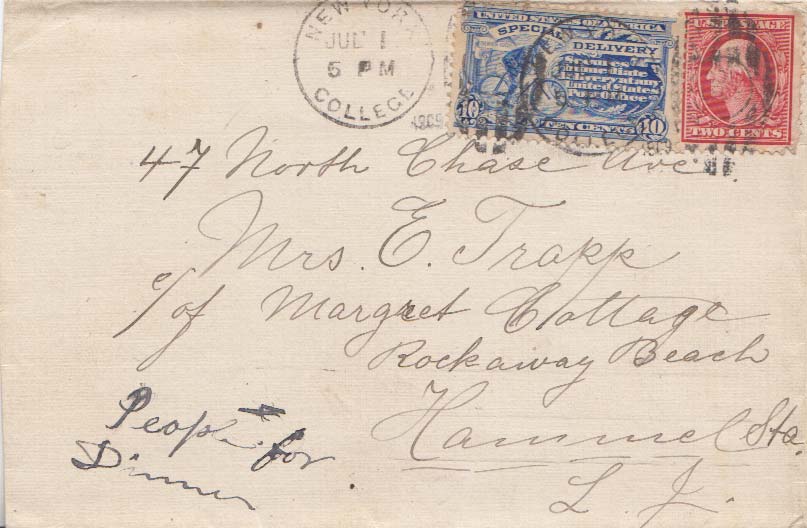 NEW YORK
JUL 1
5 PM
COLLEGE
1909
UNITED STATES OF AMERICA
SPECIAL DELIVERY
Secures Immediate Delivery at any United States Post Office
10 TEN CENTS 10
U.S. POSTAGE
TWO CENTS
47 North Chase Ave.
Mrs. E. Trapp
c/of Margret Cottage
Rockaway Beach
Hammel Sta.
L. I.
People for
Dinner